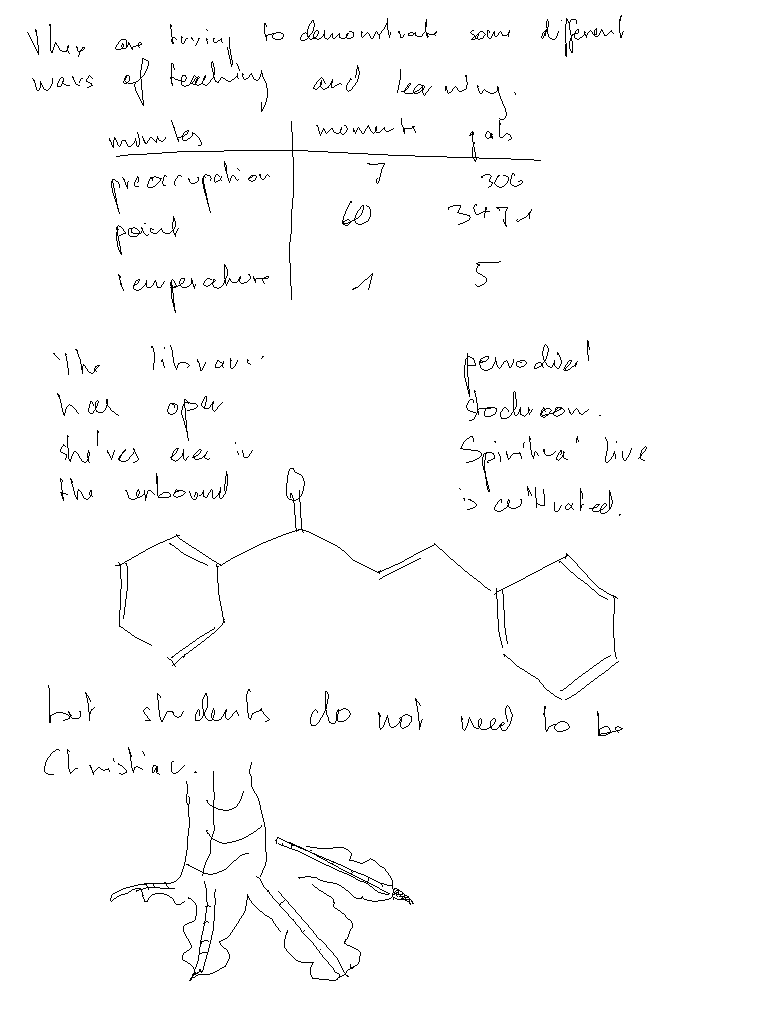 They are trying to demonstrate some different
ways of teaching and learning.
minutes moments gals
preoccupation 7 306
point 60 3471
temperature 1 5
The library
has open
shelves even in
the unbound
periodical
stockroom.
Spiritual live
is cultivated.
O
but students do not need to be
Christian.